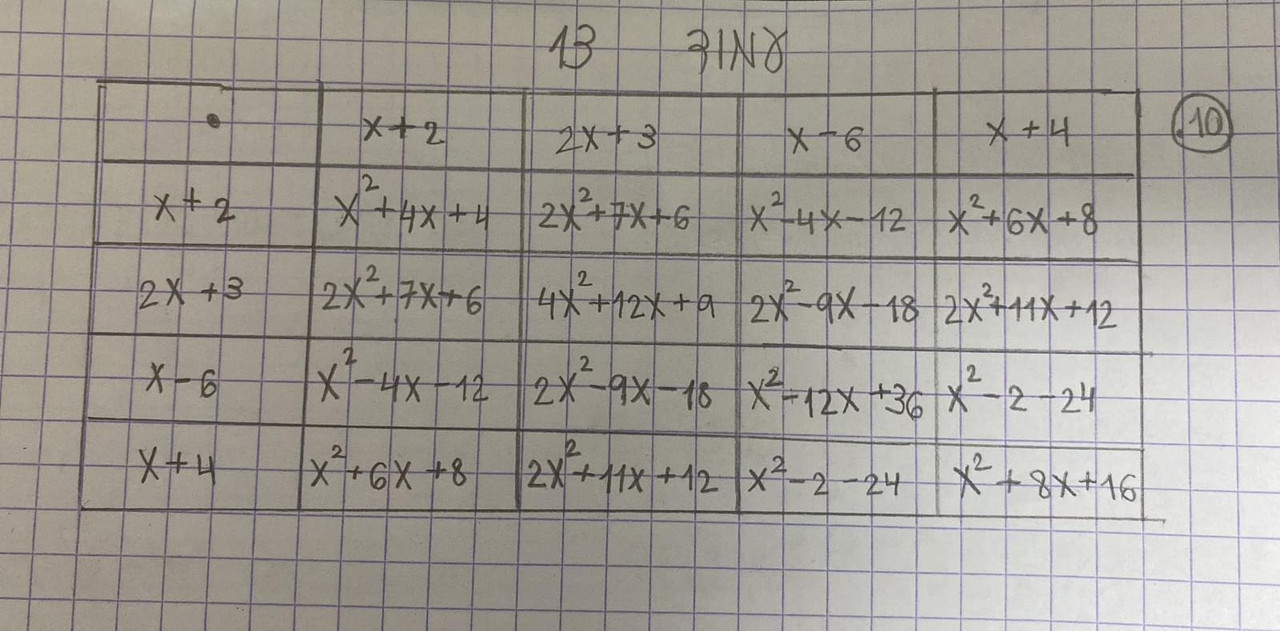 עמוד 13
• x+2 2x+3 x-6 x+4 10
x+2 x²+4x+4 2x²+7x+6 x²-4x-12 x²+6x+8
2x+3 2x²+7x+6 4x²+12x+9 2x²-9x-18 2x²+11x+12
x-6 x²-4x-12 2x²-9x-18 x²-12x+36 x²-2-24
x+4 x²+6x+8 2x²+11x+12 x²-2-24 x²+8x+16